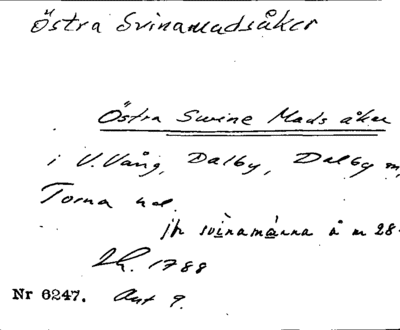 Östra Svinamadsåker
Östra Swine Mads åker
i V. Vång, Dalby, Dalby m,
Torna hd.
jfr svinamánna å m 28
Lh. 1788
Nr 6247. Akt 9.